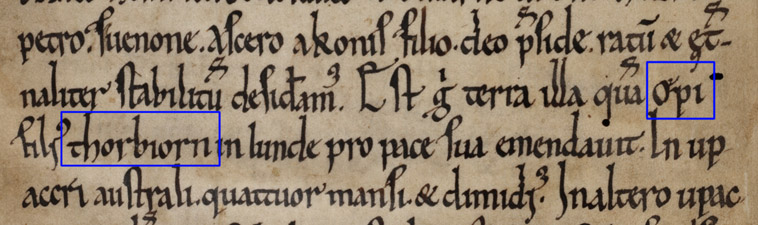 petro. suenone. Ascero akonis filio. deo p̄side. ratū & et̄-
naliter stabilitū desidam᷒. Est g̊ terra illa quā Øpi
fili᷒ thorbiorn in lunde pro pace sua emendauit. In up
accri australi. quattuor mansi. & dimidi᷒. In altero upac